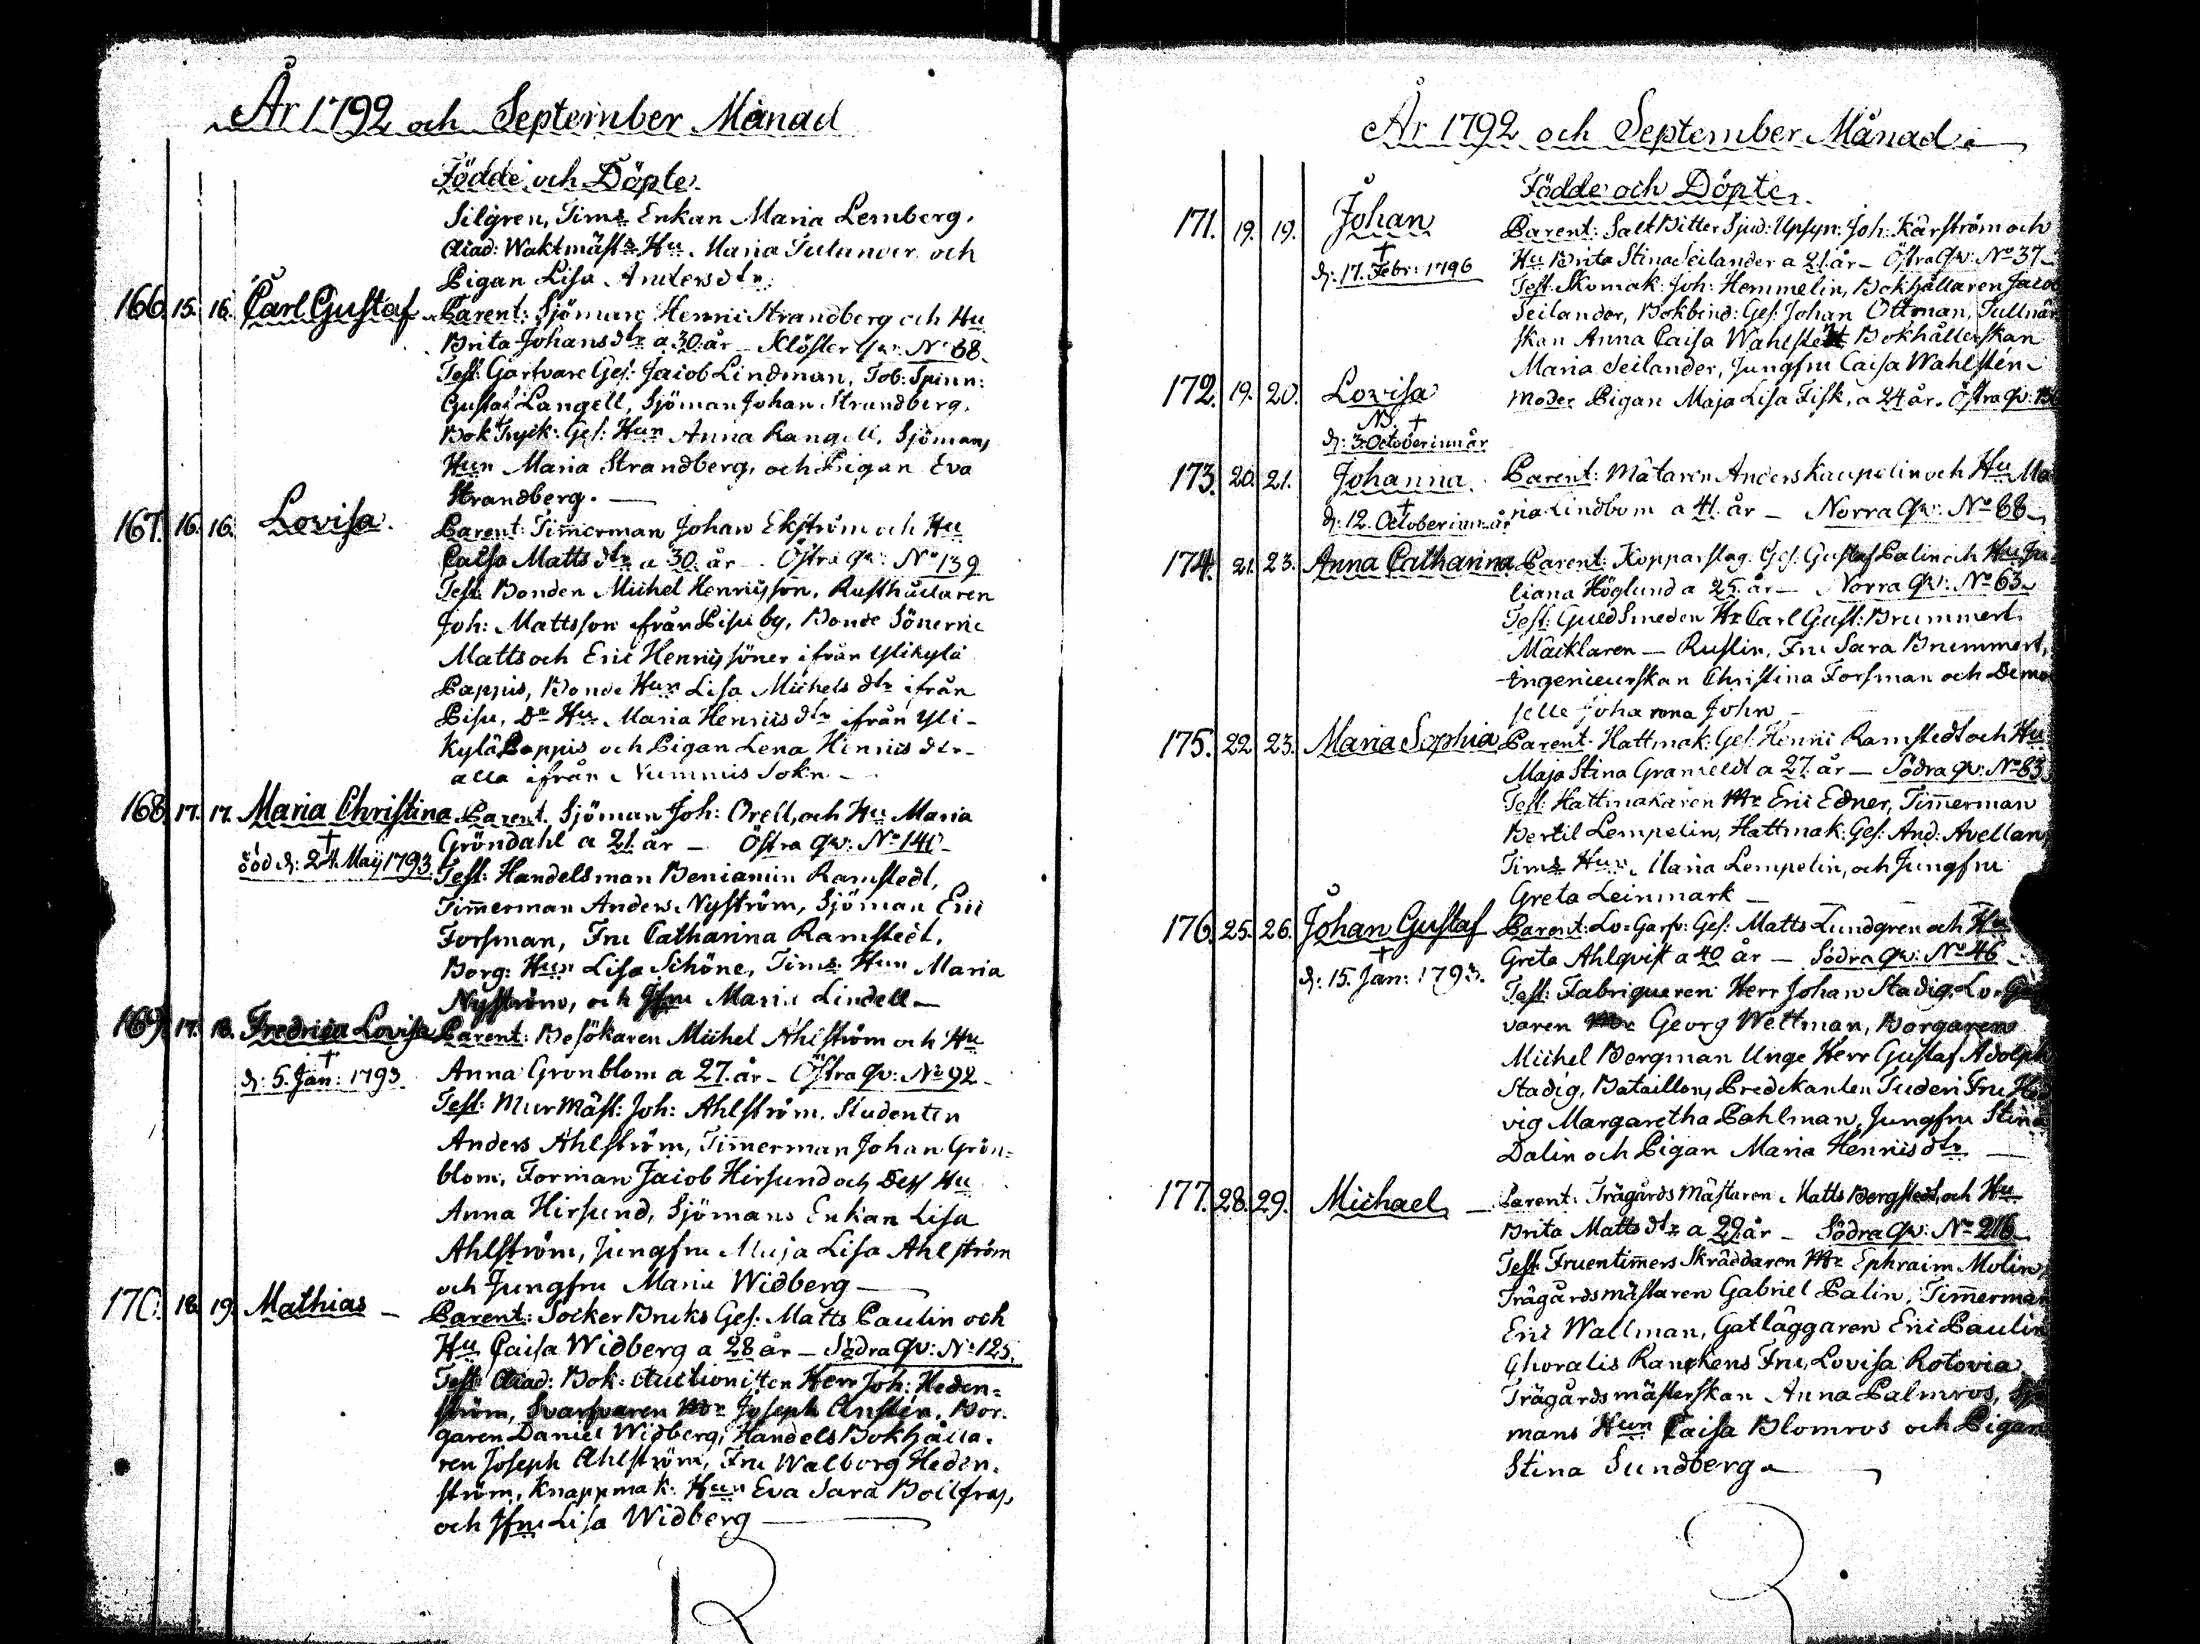 År 1792 och September Månad
Födde och Döpte.
Silgren, Tims Enkan Maria Lemberg,
Acad: Waktmäst:s Hu. Maria Tulander och
Pigan Lisa Andersdtr.
166. 15. 16. Carl Gustaf Parent: Sjöman Henric Strandberg och Hu
Brita Johansdtr a 30 år – Klöster Qv: No 68.
Test: Garfvare Ges: Jacob Lindman, Tob: Spinn:
Gustaf Langell, Sjöman Johan Strandberg,
Bok Tryck: Ges: Hun Anna Rangell, Sjömans
Hun Maria Strandberg, och Pigan Eva
Strandberg. —
167. 16. 16. Lovisa. Parent: Timmerman Johan Ekström och Hu
Caisa Mattsdtr a 30 år – Östra qv: No 139
Test: Bonden Michel Henricsson, Rusthållaren
Joh: Mattsson ifrån Pisu by, Bonde Sönerne
Matts och Eric Henricssöner ifrån Ylikylä
Pappis, Bonde Hun Lisa Michelsdtr ifrån
Pisu, Do Hu Maria Henricsdtr ifrån Yli-
kylä Pappis och Pigan Lena Henricsdtr –
alla ifrån Nummis Sokn –
168. 17. 17. Maria Christina Parent. Sjöman Joh: Orell, och Hu Maria
† Gröndahl a 21 år – Östra Qv: No 140
död d: 24. Maij 1793. Test: Handelsman Beniamin Ramstedt,
Timmerman Anders Nyström, Sjöman Eric
Forsman, Fru Catharina Ramstedt,
Borg: Hun Lisa Schöne, Tims Hun Maria
Nyström, och Jfru Maria Lindell –
169. 17. 18. Fredrica Lovisa Parent: Besökaren Michel Ahlström och Hu
†
d: 5. Jan: 1793. Anna Gronblom a 27 år – Östra Qv: No 92 –
Test: Mur Mäst: Joh: Ahlström, Studenten
Anders Ahlström, Timmerman Johan Grön=
blom, Forman Jacob Hirsund och Dess Hu
Anna Hirsund, Sjömans Enkan Lisa
Ahlström, Jungfru Maja Lisa Ahlström
och Jungfru Maria Widberg —
170. 18. 19. Mathias – Parent: Socker Bruks Ges: Matts Paulin och
Hu Caisa Widberg a 28 år – Södra Qv: No 125.
Test: Acad: Bok: Auctionisten Herr Joh: Heden=
ström, Svarfvaren Mr Joseph Anstén, Bor-
garen Daniel Widberg, Handels Bokhålla-
ren Joseph Ahlström, Fru Walborg Heden-
ström, Knappmak: Hun Eva Sara
och Jfru Lisa Widberg —
År 1792 och September Månad.
Födde och Döpte.
171. 19. 19. Johan Parent: Salt Petter Sjud: Upsyn: Joh: Kärström och
† Hu Brita Stina Seilander a 21 år – Östra Qv: No 37 –
d: 17. Febr: 1796 Test: Skomak: Joh: Hemmelin, Bokhållaren Jacob
Seilander, Bokbind: Ges: Johan Ottman, Tullnär
skan Anna Caisa Wahlstén Bokhållerskan
Maria Seilander, Jungfru Caisa Wahlstén
172. 19. 20. Lovisa Moder Pigan Maja Lisa Fisk, a 24 år. Östra qv:
NB. †
d: 3. October innev: år
173. 20. 21. Johanna. Parent: Mätaren Anders Kaupelin och Hu Ma
†
d: 12. October innev: år ria Lindbom a 41 år – Norra Qv: No 68 –
174. 21. 23. Anna Catharina Parent: Kopparslag. Ges: Gustaf Palin och Hu Ju
liana Höglund a 25 år – Norra Qv: No 63
Test: Guldsmeden Hr Carl Gust: Brummert
Mäcklaren – Ruslin, Fru Sara Brummert,
Ingenieurskan Christina Forsman och Demoi
selle Johanna John –
175. 22. 23. Maria Sophia Parent: Hattmak: Ges: Henric Ramstedt och Hu
Maja Stina Granfeldt a 27 år – Södra qv: No 83
Test: Hattmakaren Mr Eric Edner, Timmerman
Bertil Lempelin, Hattmak: Ges: And: Avellan,
Tims Hun Maria Lempelin, och Jungfru
Greta Leinmark —
176. 25. 26. Johan Gustaf Parent: Lo: Garf: Ges: Matts Lundgren och Hu
† Greta Ahlqvist a 40 år – Södra Qv: No 46
d: 15. Jan: 1793. Test: Fabriqueren Herr Johan Stadig, Lo: Garf
varen Mr Georg Wettman, Borgaren
Michel Bergman Unge Herr Gustaf Adolph
Stadig, Bataillons Predikanten Tuderi Fru Hed
vig Margaretha Pahlman, Jungfru Stina
Dalin och Pigan Maria Henricsdtr —
177. 28. 29. Michael – Parent: Trägårds Mästaren Matts Bergstedt, och Hu
Brita Mattsdtr a 29 år – Södra Qv: No 216
Test: Fruentimmers Skräddaren Mr Ephraim Molin,
Trägårdsmästaren Gabriel Palin, Timmerman
Eric Wallman, Gatläggaren Eric Paulin
Choralis Ranckens Fru, Lovisa Rotovia
Trägårdsmästerskan Anna Palmros, Sjö
mans Hun Caisa Blomros och Pigan
Stina Sundberg. —